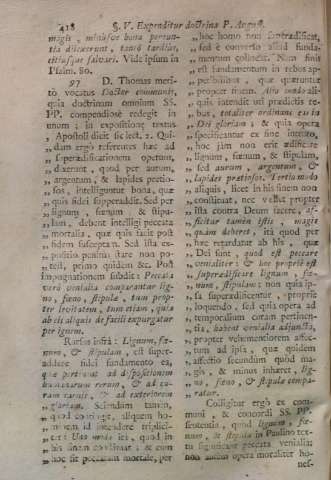 418 §. V. Expenditur doctrina P. August.
magis, minusve bona pereun-
tia discucerunt, tantò tardiùs,
citiusque salvari. Vide ipsum in
Psalm. 80.
97 D. Thomas meri-
tò vocatus Doctor communis,
quia doctrinam omnium SS.
PP. compendiosè redegit in
unum; in expositione textus
Apostoli dicit sic lect. 2. Qui-
„ dam ergò referentes hæc ad
„ superædificationem operum,
„ dixerunt, quòd per aurum,
„ argentum, & lapides pretio-
„ sos, intelliguntur bona, quæ
„ quis fidei superaddit. Sed per
„ lignum, fœnum & stipu-
„ lam, debent intelligi peccata
„ mortalia, quæ quis facit post
„ fidem susceptam. Sed ista ex-
„ positio penitùs stare non po-
„ test, primo quidem &c. Post
impugnationem subdit: Peccata
verò venialia comparantur lig-
no, fœno, stipulæ, tum prop-
ter levitatem, tum etiam, quia
ab eis aliquis de facili expurgatur
per ignem.
Rursus infrà: Lignum, fœ-
num, & stipulam, est super-
addere fidei fundamento ea,
quæ pertinent ad dispositionem
humanarum rerum, & ad cu-
ram carnis, & ad exteriorem
„ gloriam. Sciendum tamen,
„ quòd contingit, aliquem ho-
„ minem id intendere triplici-
„ ter: Uno modo ita, quòd in
„ his finem constituat: & cum
„ hoc sit peccatum mortale, per
„ hoc homo non superædificat,
„ sed è converso aliud funda-
„ mentum collocat. Nam finis
„ est fundamentum in rebus ap-
„ petibilibus, quæ quæruntur
„ propter finem. Alio modo ali-
„ quis intendit uti prædictis re-
„ bus, totaliter ordinans eas in
„ Dei gloriam; & quia opera
„ specificantur ex fine intento,
„ hoc jam non erit ædificare
„ lignum, fœnum, & stipulam,
„ sed aurum, argentum, &
„ lapides pretiosos. Tertio modo
„ aliquis, licet in his finem non
„ constituat, nec vellet propter
„ ista contra Deum facere, af-
„ ficitur tamen istis, magis
„ quàm deberet, ità quod per
„ hæc retardatur ab his, quæ
„ Dei sunt, quod est peccare
„ venialiter: & hoc propriè est
„ superædificare lignum, fœ-
„ num, stipulam; non quia ip-
„ sa superædificentur, propriè
„ loquendo, sed quia opera ad
„ temporalium curam pertinen-
„ tia, habent venialia adjuncta,
„ propter vehementiorem affec-
„ tum ad ipsa, qui quidem
„ affectus secundùm quòd ma-
„ gis, & minus inhæret, lig-
„ no, fœno, & stipulæ compa-
„ ratur.
Colligitur ergò ex com-
muni, & concordi SS. PP.
sententia, quòd lignum, fœ-
num, & stipula in Paulino tex-
tu significent peccata venialia;
non autem opera moraliter ho-
nes-